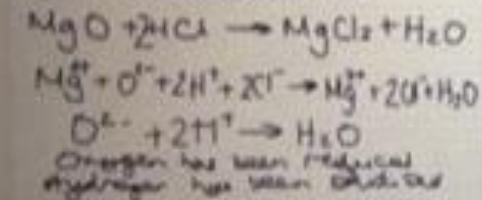 MgO + 2HCl → MgCl₂ + H₂O
Mg²⁺ + O²⁻ + 2H⁺ + 2Cl⁻ → Mg²⁺ + 2Cl⁻ + H₂O
O²⁻ + 2H⁺ → H₂O
Oxygen has been reduced
Hydrogen has been oxidised